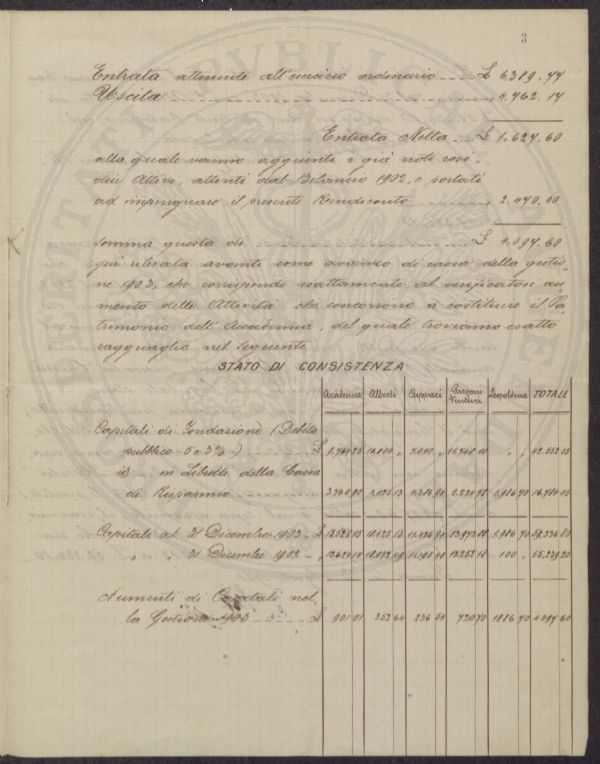 3
Entrata attinente all'esercizio ordinario £ 6,389.44
Uscita 4,762.14
Entrata Netta £ 1,627.60
alla quale vanno aggiunti i già noti resi-
dui Attivi, attinti dal Bilancio 1902, e portati
ad impinguare il presente Rendiconto 2.470,00
somma questa di £ 4.097.60
già rilevata avanti come avanzo di cassa della gestio-
ne 1903, che corrisponde esattamente al verificatosi au-
mento delle Attività che concorrono a costituire il Pa-
trimonio dell'Accademia, del quale troviamo esatto
ragguaglio nel seguente
STATO DI CONSISTENZA
Accademia Alberti Pazzani Venturi Leopoldina TOTALE
Capitali di Fondazione (Debito
pubblico 5 e 3%) £
id in Libretti della Cassa
di Risparmio
Capitali al 31 Dicembre 1903 £
" " 31 Dicembre 1902 12,624.14 100 55,239.20
Aumenti di Capitali nel-
la Gestione 1903 £ 901.01 352.64 236.54 720.70 1886.70 4097.60